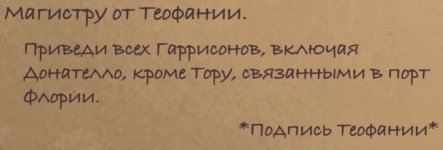 Магистру от Теофании.
Приведи всех Гаррисонов, включая
Донателло, кроме Тору, связанными в порт
Флории.
*Подпись Теофании*